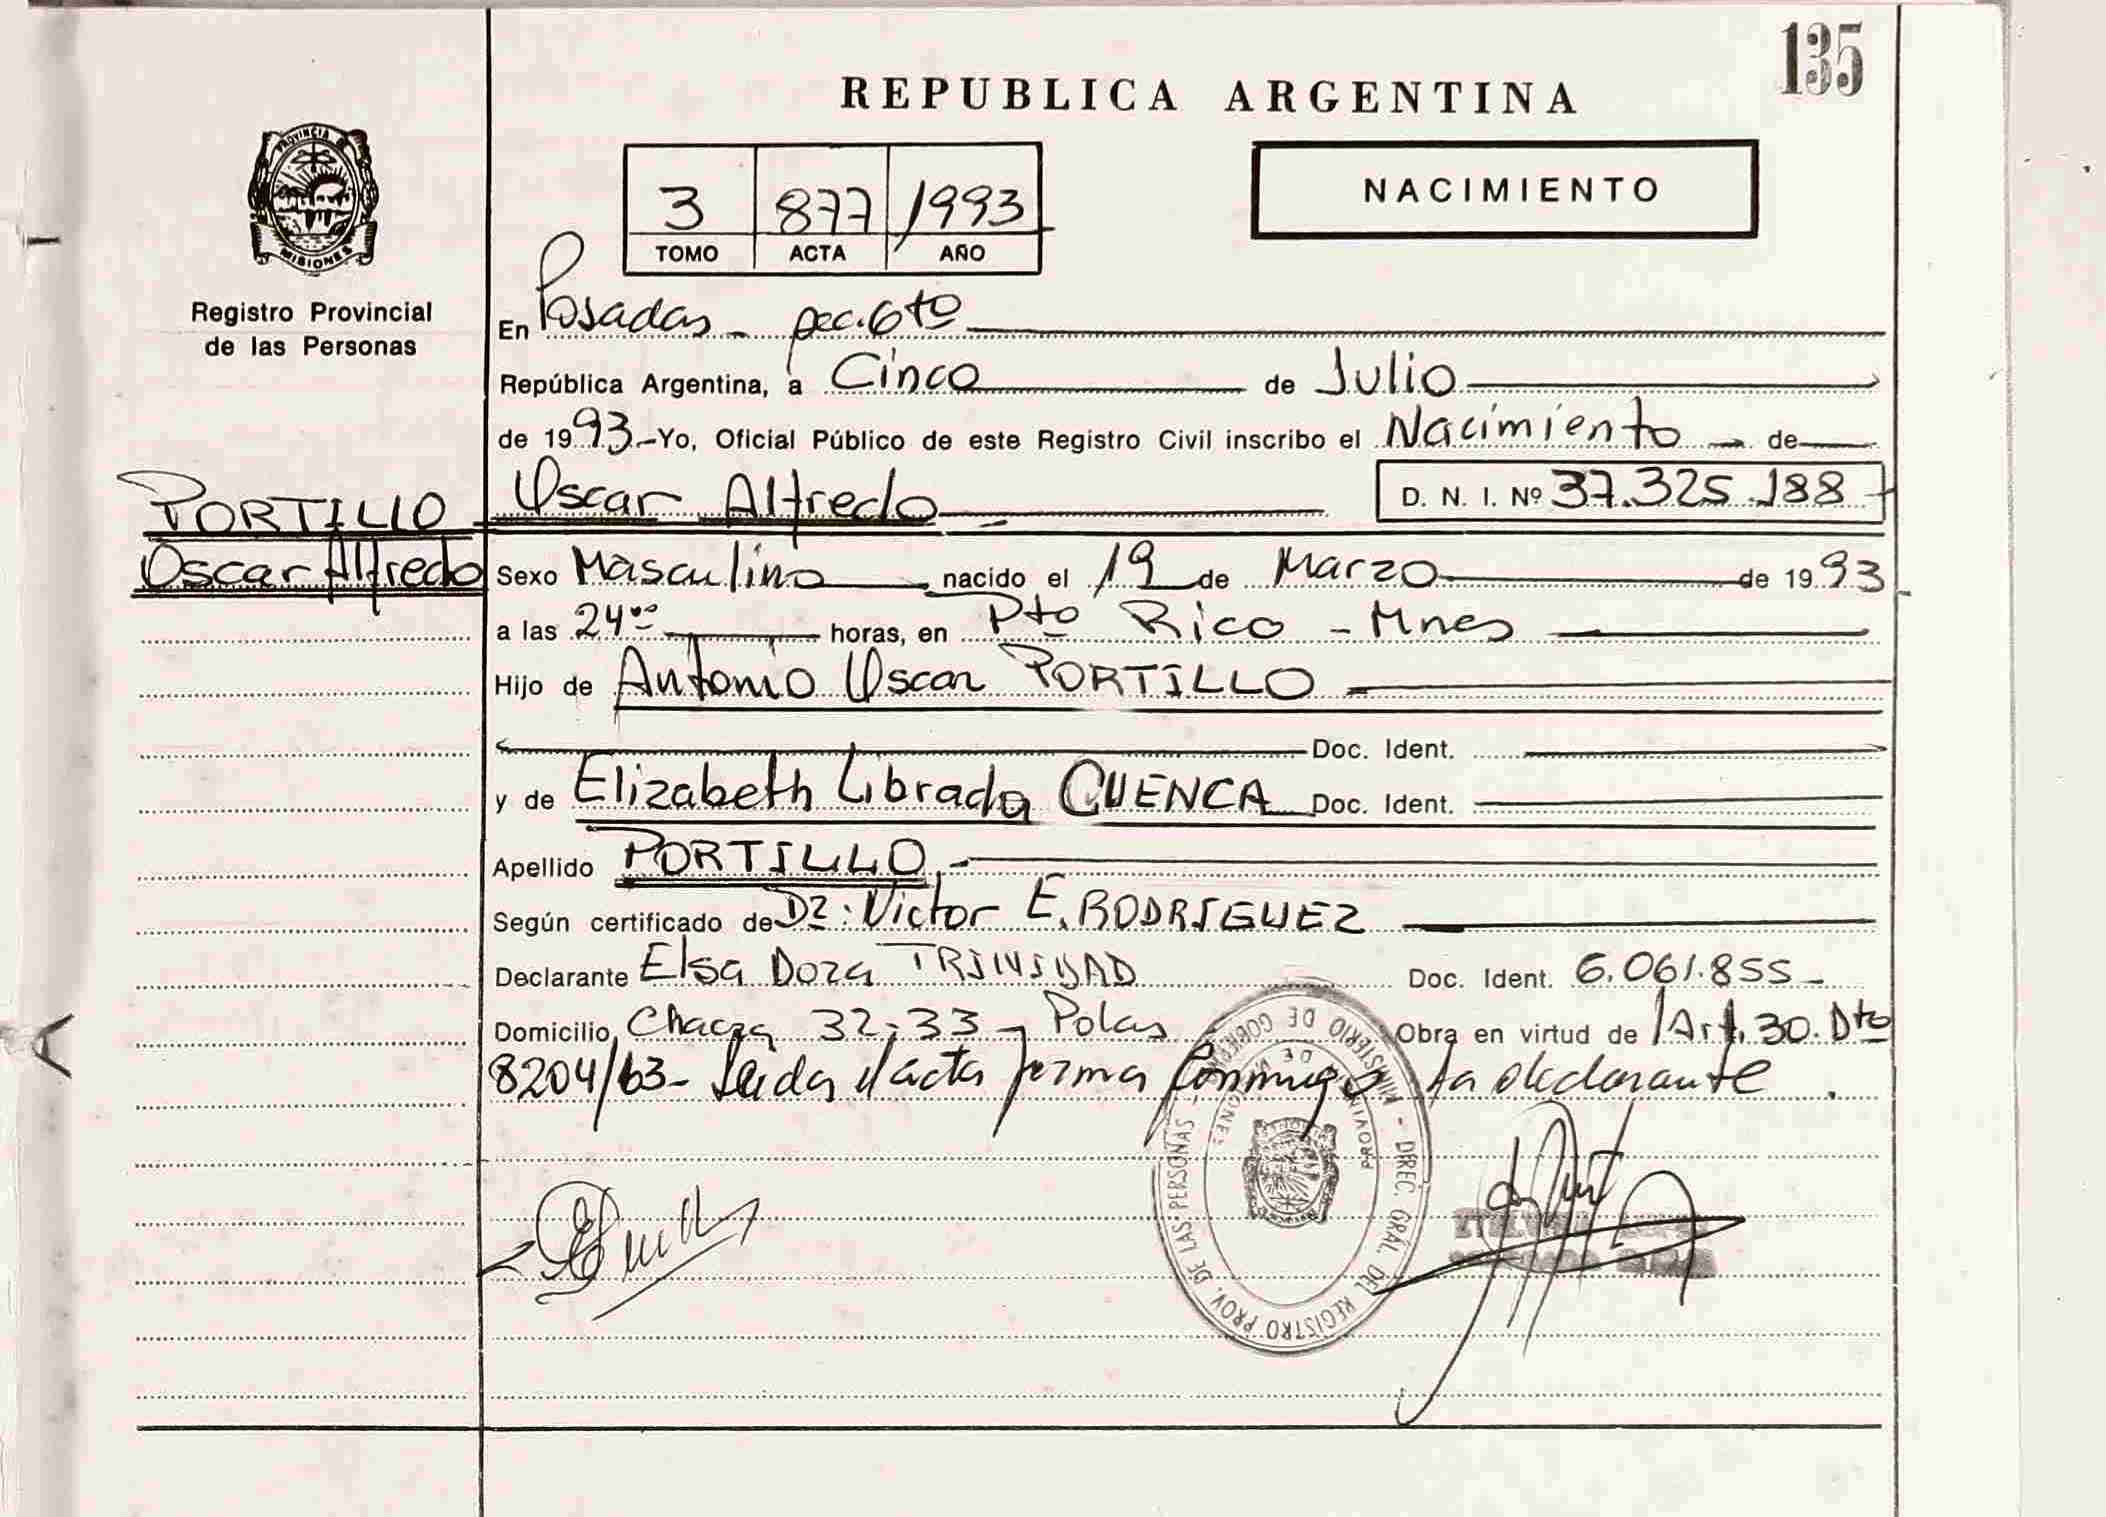 135
REPUBLICA ARGENTINA
NACIMIENTO
3 877 1993
TOMO ACTA AÑO
PROVINCIA DE
MISIONES
Registro Provincial
de las Personas
En Posadas - Secc. 6to
República Argentina, a Cinco de Julio
de 1993.- Yo, Oficial Público de este Registro Civil inscribo el Nacimiento de
PORTILLO
Oscar Alfredo
Oscar Alfredo D. N. I. Nº 37.325.188
Sexo Masculino nacido el 19 de Marzo de 1993
a las 24 00 horas, en Pto Rico - Mnes
Hijo de Antonio Oscar PORTILLO
Doc. Ident.
y de Elizabeth Librada CUENCA Doc. Ident.
Apellido PORTILLO
Según certificado de Dr: Victor E. RODRIGUEZ
Declarante Elsa Dora TRINIDAD Doc. Ident. 6.061.855
Domicilio Chacra 32-33 - Pdas Obra en virtud de Art. 30. Dto
8204/63- Leida el acta firma conmigo la declarante.
MINISTERIO DE GOBIERNO - DIREC. GRAL. DEL REGISTRO PROV. DE LAS PERSONAS -
PROVINCIA DE MISIONES